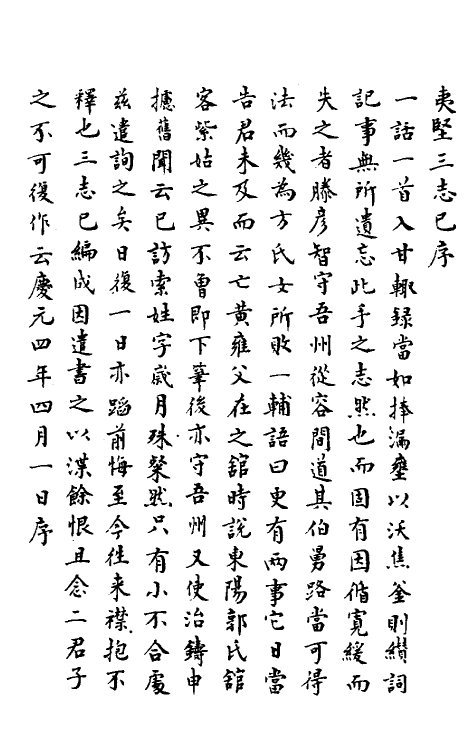 夷堅三志已序
一話一首入甘輙録當如捧漏甕以沃焦釜則纉詞
記事無所遺忘此手之志然也而固有因循寛緩而
失之者滕彦智守吾州從容間道其伯舅路當可得
法而幾為方氏女所敗一輔語曰更有兩事它日當
告君未及而云亡黄雍父在之舘時説東陽郭氏舘
客紫姑之異不曽即下筆後亦守吾州又使治鑄申
攄舊聞云已訪索姓字歳月殊粲然只有小不合處
兹遣詢之矣日復一日亦蹈前悔至今徃来襟抱不
釋也三志已編成因遣書之以渫餘恨且念二君子
之不可復作云慶元四年四月一日序